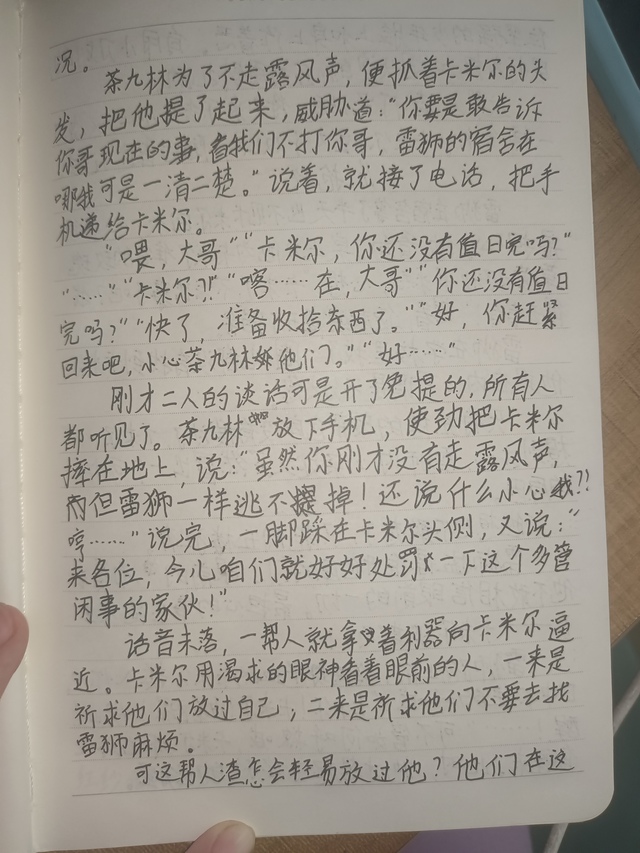 况。
茶九林为了不走露风声，便抓着卡米尔的头
发，把他提了起来，威胁道："你要是敢告诉
你哥现在的事，看我们不打你哥，雷狮的宿舍在
哪我可是一清二楚。"说着，就接了电话，把手
机递给卡米尔。
"喂，大哥""卡米尔，你还没有值日完吗？"
"……""卡米尔？！""喀……在，大哥""你还没有值日
完吗？""快了，准备收拾东西了。""好，你赶紧
回来吧，小心茶九林他们。""好……"
刚才二人的谈话可是开了免提的，所有人
都听见了。茶九林放下手机，使劲把卡米尔
摔在地上，说："虽然你刚才没有走露风声，
但雷狮一样逃不掉！还说什么小心我？？
哼……"说完，一脚踩在卡米尔头侧，又说："
来各位，今儿咱们就好好处罚一下这个多管
闲事的家伙！"
话音未落，一帮人就拿着利器向卡米尔逼
近。卡米尔用渴求的眼神看着眼前的人，一来是
祈求他们放过自己；二来是祈求他们不要去找
雷狮麻烦。
可这帮人渣怎会轻易放过他？他们在这